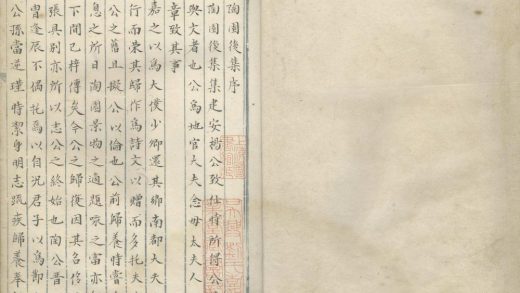 陶園後集序
陶園後集集建安楊公致仕時所得公
與文者也公爲地官大夫念母太夫人
章致其事
嘉之以爲太僕少卿還其鄉南都大夫
行而榮其歸作爲詩文以贈而多托夫
公之舊且擬公以倫也公前歸養時嘗
息之所曰陶園景物之適題咏之富亦
下間已梓傳矣今公之歸復因其名
張具別亦所以志公之終始也陶公昔
曾逢辰不偶托焉以自况君子以爲鄙
公孫當逆瑾時潔身明志疏疾歸養奉